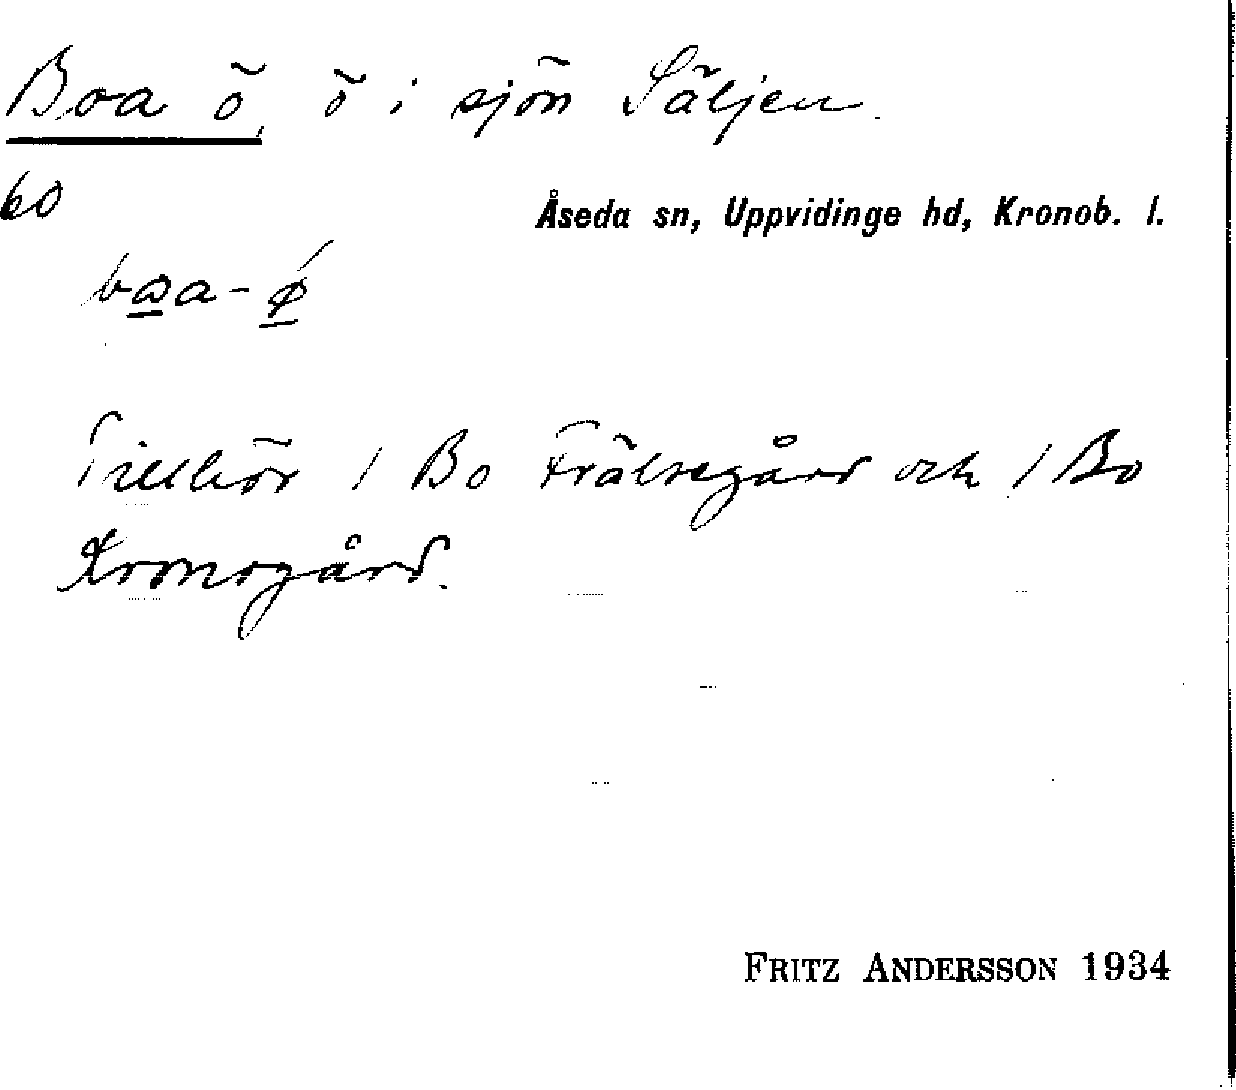 Boa ö, ö i sjön Säljen.
60
Åseda sn, Uppvidinge hd, Kronob. l.
bꙍa-ǿ
Tillhör / Bo Frälsegård och / Bo
Kronogård.
FRITZ ANDERSSON 1934